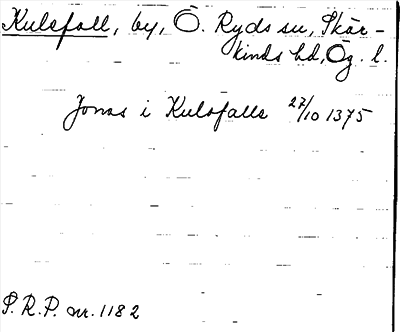 Kulsfall, by, Ö. Ryds sn, Skär-
kinds hd, Ög. l.
Jonas i Kulsfalle 27/10 1375
S.R.P. nr. 1182